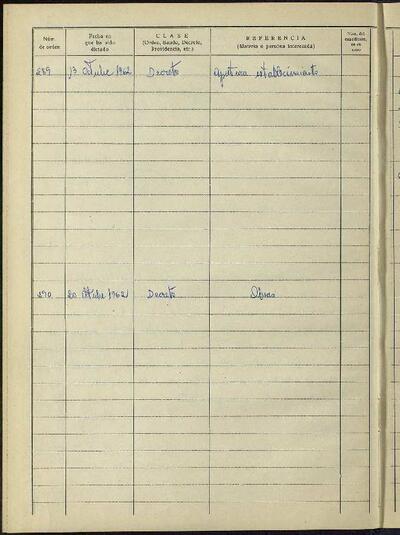 Núm. de orden
Fecha en que ha sido dictado
CLASE
(Orden, Bando, Decreto, Providencia, etc.)
REFERENCIA
(Materia o persona interesada)
Núm. del
289 13 Octubre 1962 Decreto Apertura establecimiento
290 20 Octubre 1962 Decreto Obras